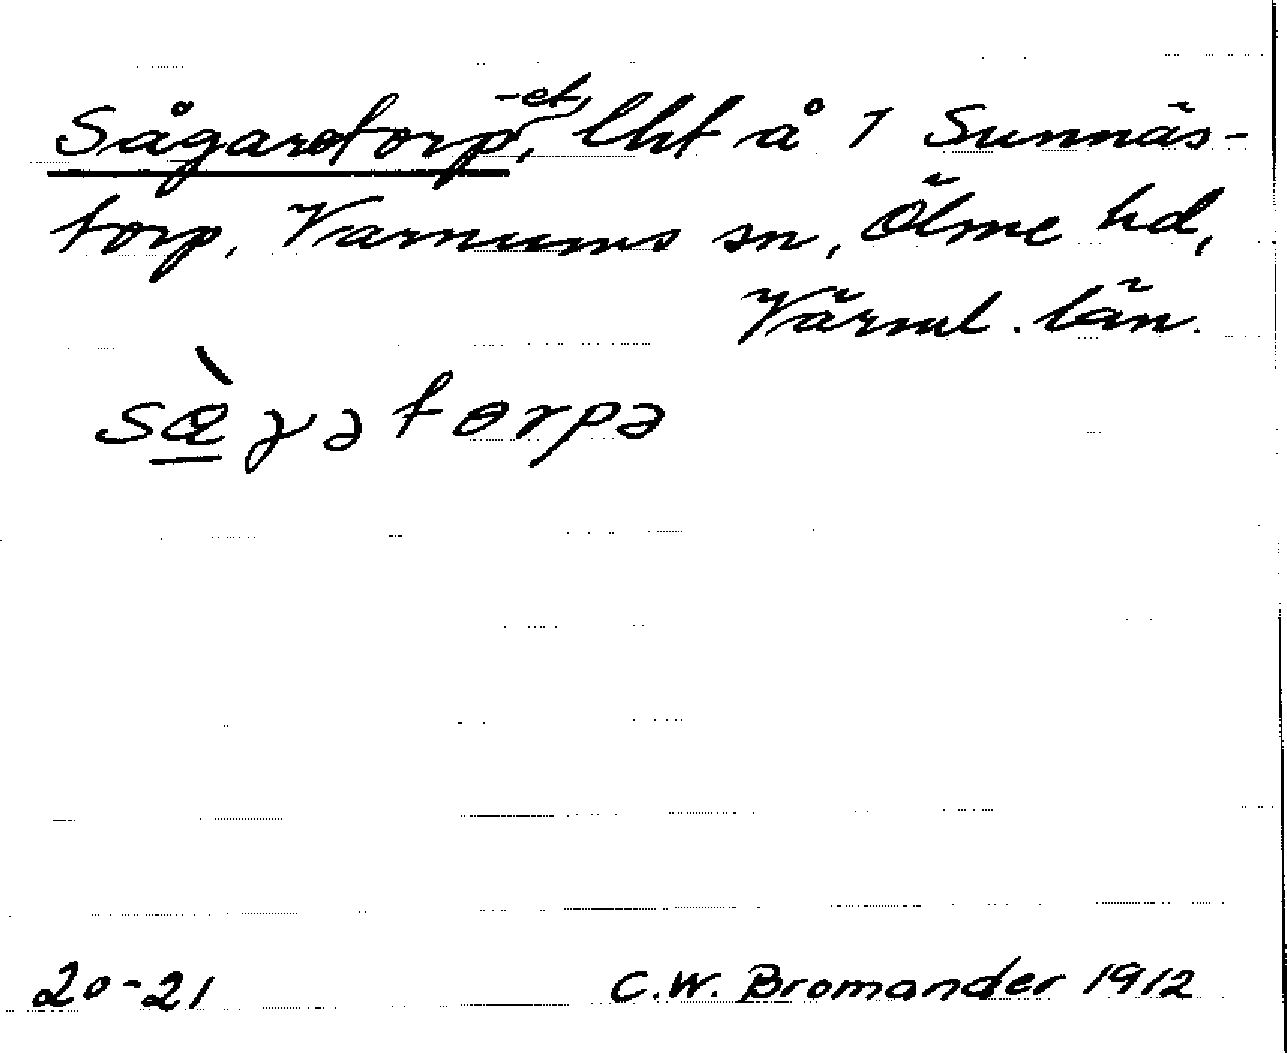 Sågaretorp, -et, lht å 1 Sunnäs-
torp, Varnums sn, Ölme hd,
Värml. län.
sæ̀gətɵrpə
20-21 C.W. Bromander 1912